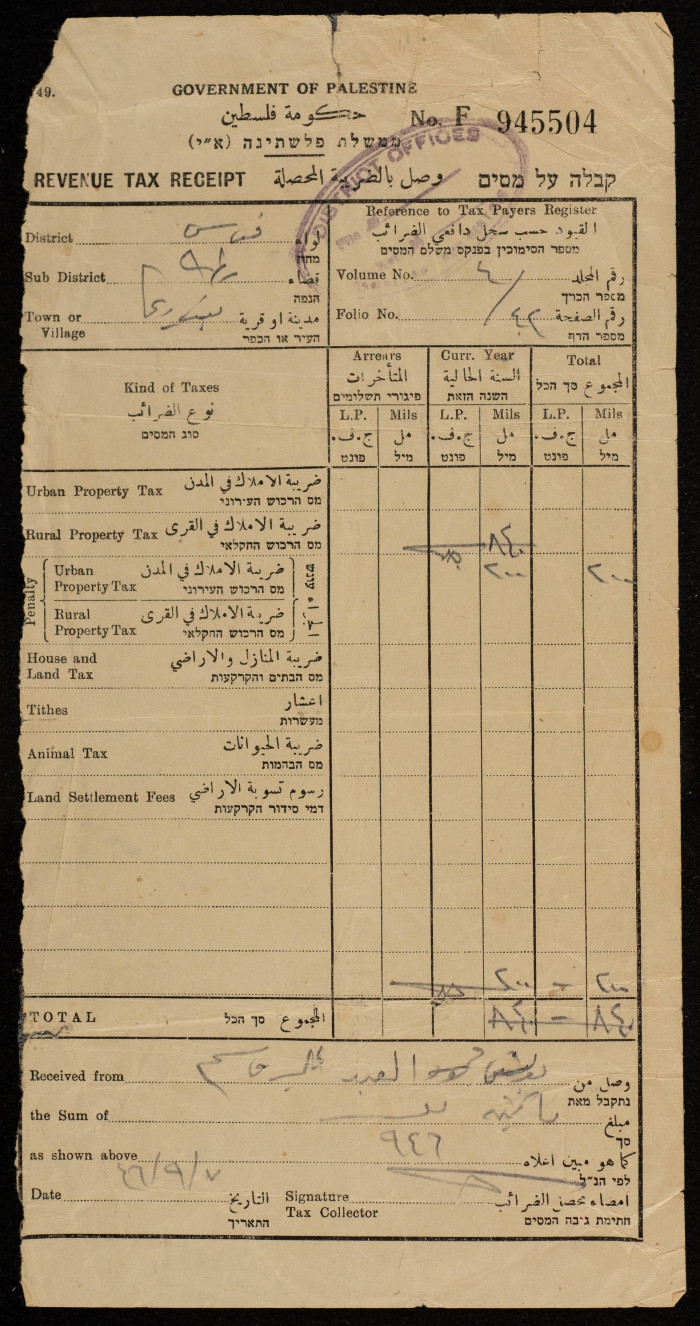 49.
GOVERNMENT OF PALESTINE
حكومة فلسطين
No. F 945504
ממשלת פלשתינה (א״י)
DISTRICT OFFICES
REVENUE TAX RECEIPT وصل بالضريبة المحصلة קבלה על מסים
District لواء
מחוז
Sub District قضاء
הנפה
Town or Village مدينة او قرية
העיר או הכפר
Reference to Tax Payers Register
القيود حسب سجل دافعي الضرائب
מספר הסימוכין בפנקס משלם המסים
Volume No. ٤ رقم المجلد
מספר הכרך
Folio No. ٤٢ رقم الصفحة
מספר הדף
Kind of Taxes
نوع الضرائب
סוג המסים
Arrears
المتأخرات
פיגורי תשלומים
Curr. Year
السنة الحالية
השנה הזאת
Total
المجموع סך הכל
L.P. Mils L.P. Mils L.P. Mils
ج.ف. مل ج.ف. مل ج.ف. مل
פונט מיל פונט מיל פונט מיל
Urban Property Tax ضريبة الاملاك في المدن
מס הרכוש העירוני
Rural Property Tax ضريبة الاملاك في القرى
מס הרכוש החקלאי
٨٤٠
٢٠٠ ٢٠٠
Penalty
Urban Property Tax ضريبة الاملاك في المدن
מס הרכוש העירוני
Rural Property Tax ضريبة الاملاك في القرى
מס הרכוש החקלאי
עונש
House and Land Tax ضريبة المنازل والاراضي
מס הבתים והקרקעות
Tithes اعشار
מעשרות
Animal Tax ضريبة الحيوانات
מס הבהמות
Land Settlement Fees رسوم تسوية الاراضي
דמי סידור הקרקעות
٢٠٠ – ٢٠٠
TOTAL المجموع סך הכל
٨٤٠ – ٨٤٠
Received from وصل من
נתקבל מאת
the Sum of مبلغ
סך
as shown above ٩٤٦ كما هو مبين اعلاه
לפי הנ״ל
٤٦/٩/٧
Date التاريخ
התאריך
Signature Tax Collector امضاء محصل الضرائب
חתימת גובה המסים